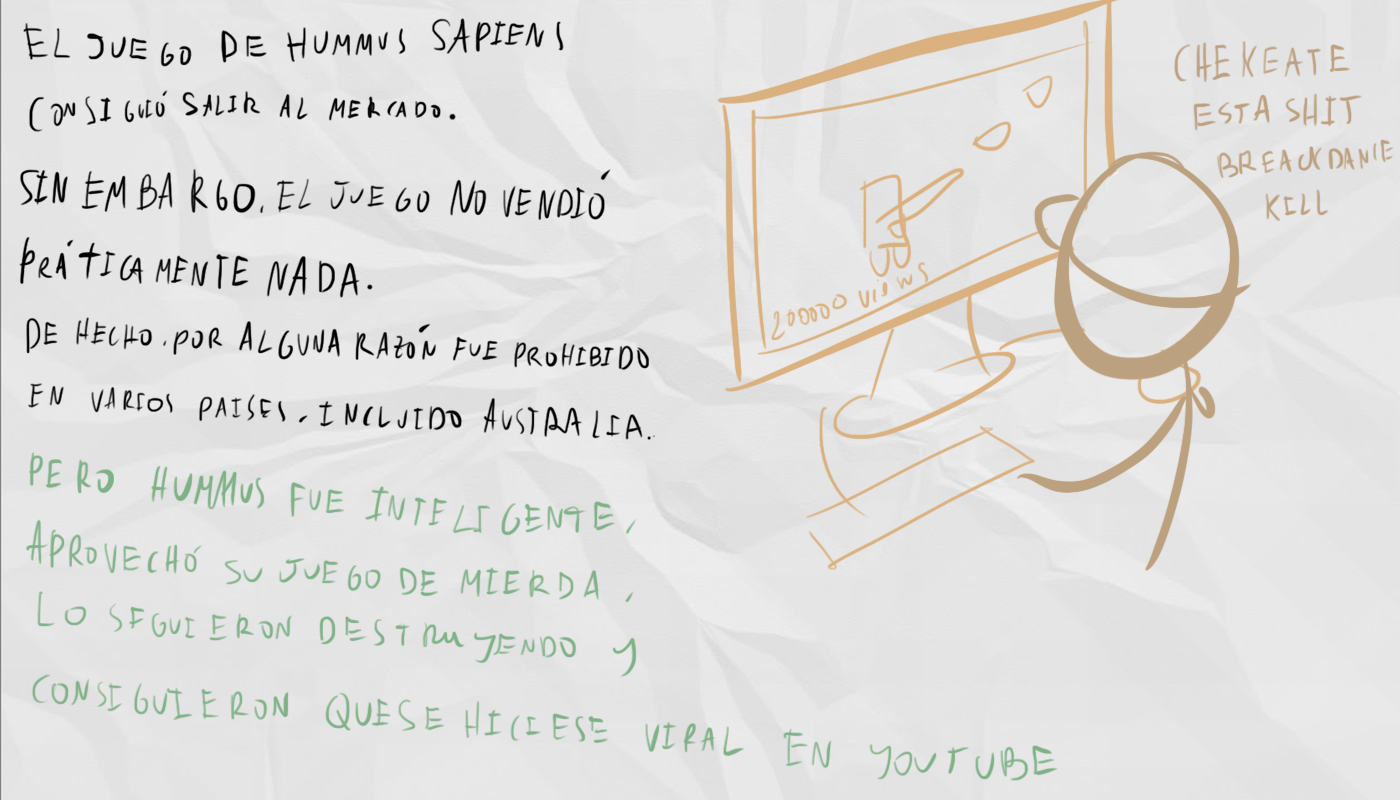 EL JUEGO DE HUMMUS SAPIENS
CONSIGUIÓ SALIR AL MERCADO.
SIN EMBARGO, EL JUEGO NO VENDIÓ
PRÁTICAMENTE NADA.
DE HECHO, POR ALGUNA RAZÓN FUE PROHIBIDO
EN VARIOS PAISES, INCLUIDO AUSTRALIA.
PERO HUMMUS FUE INTELIGENTE,
APROVECHÓ SU JUEGO DE MIERDA,
LO SEGUIERON DESTRUYENDO Y
CONSIGUIERON QUE SE HICIESE VIRAL EN YOUTUBE
200000 views
CHEKEATE
ESTA SHIT
BREACKDANCE
KILL